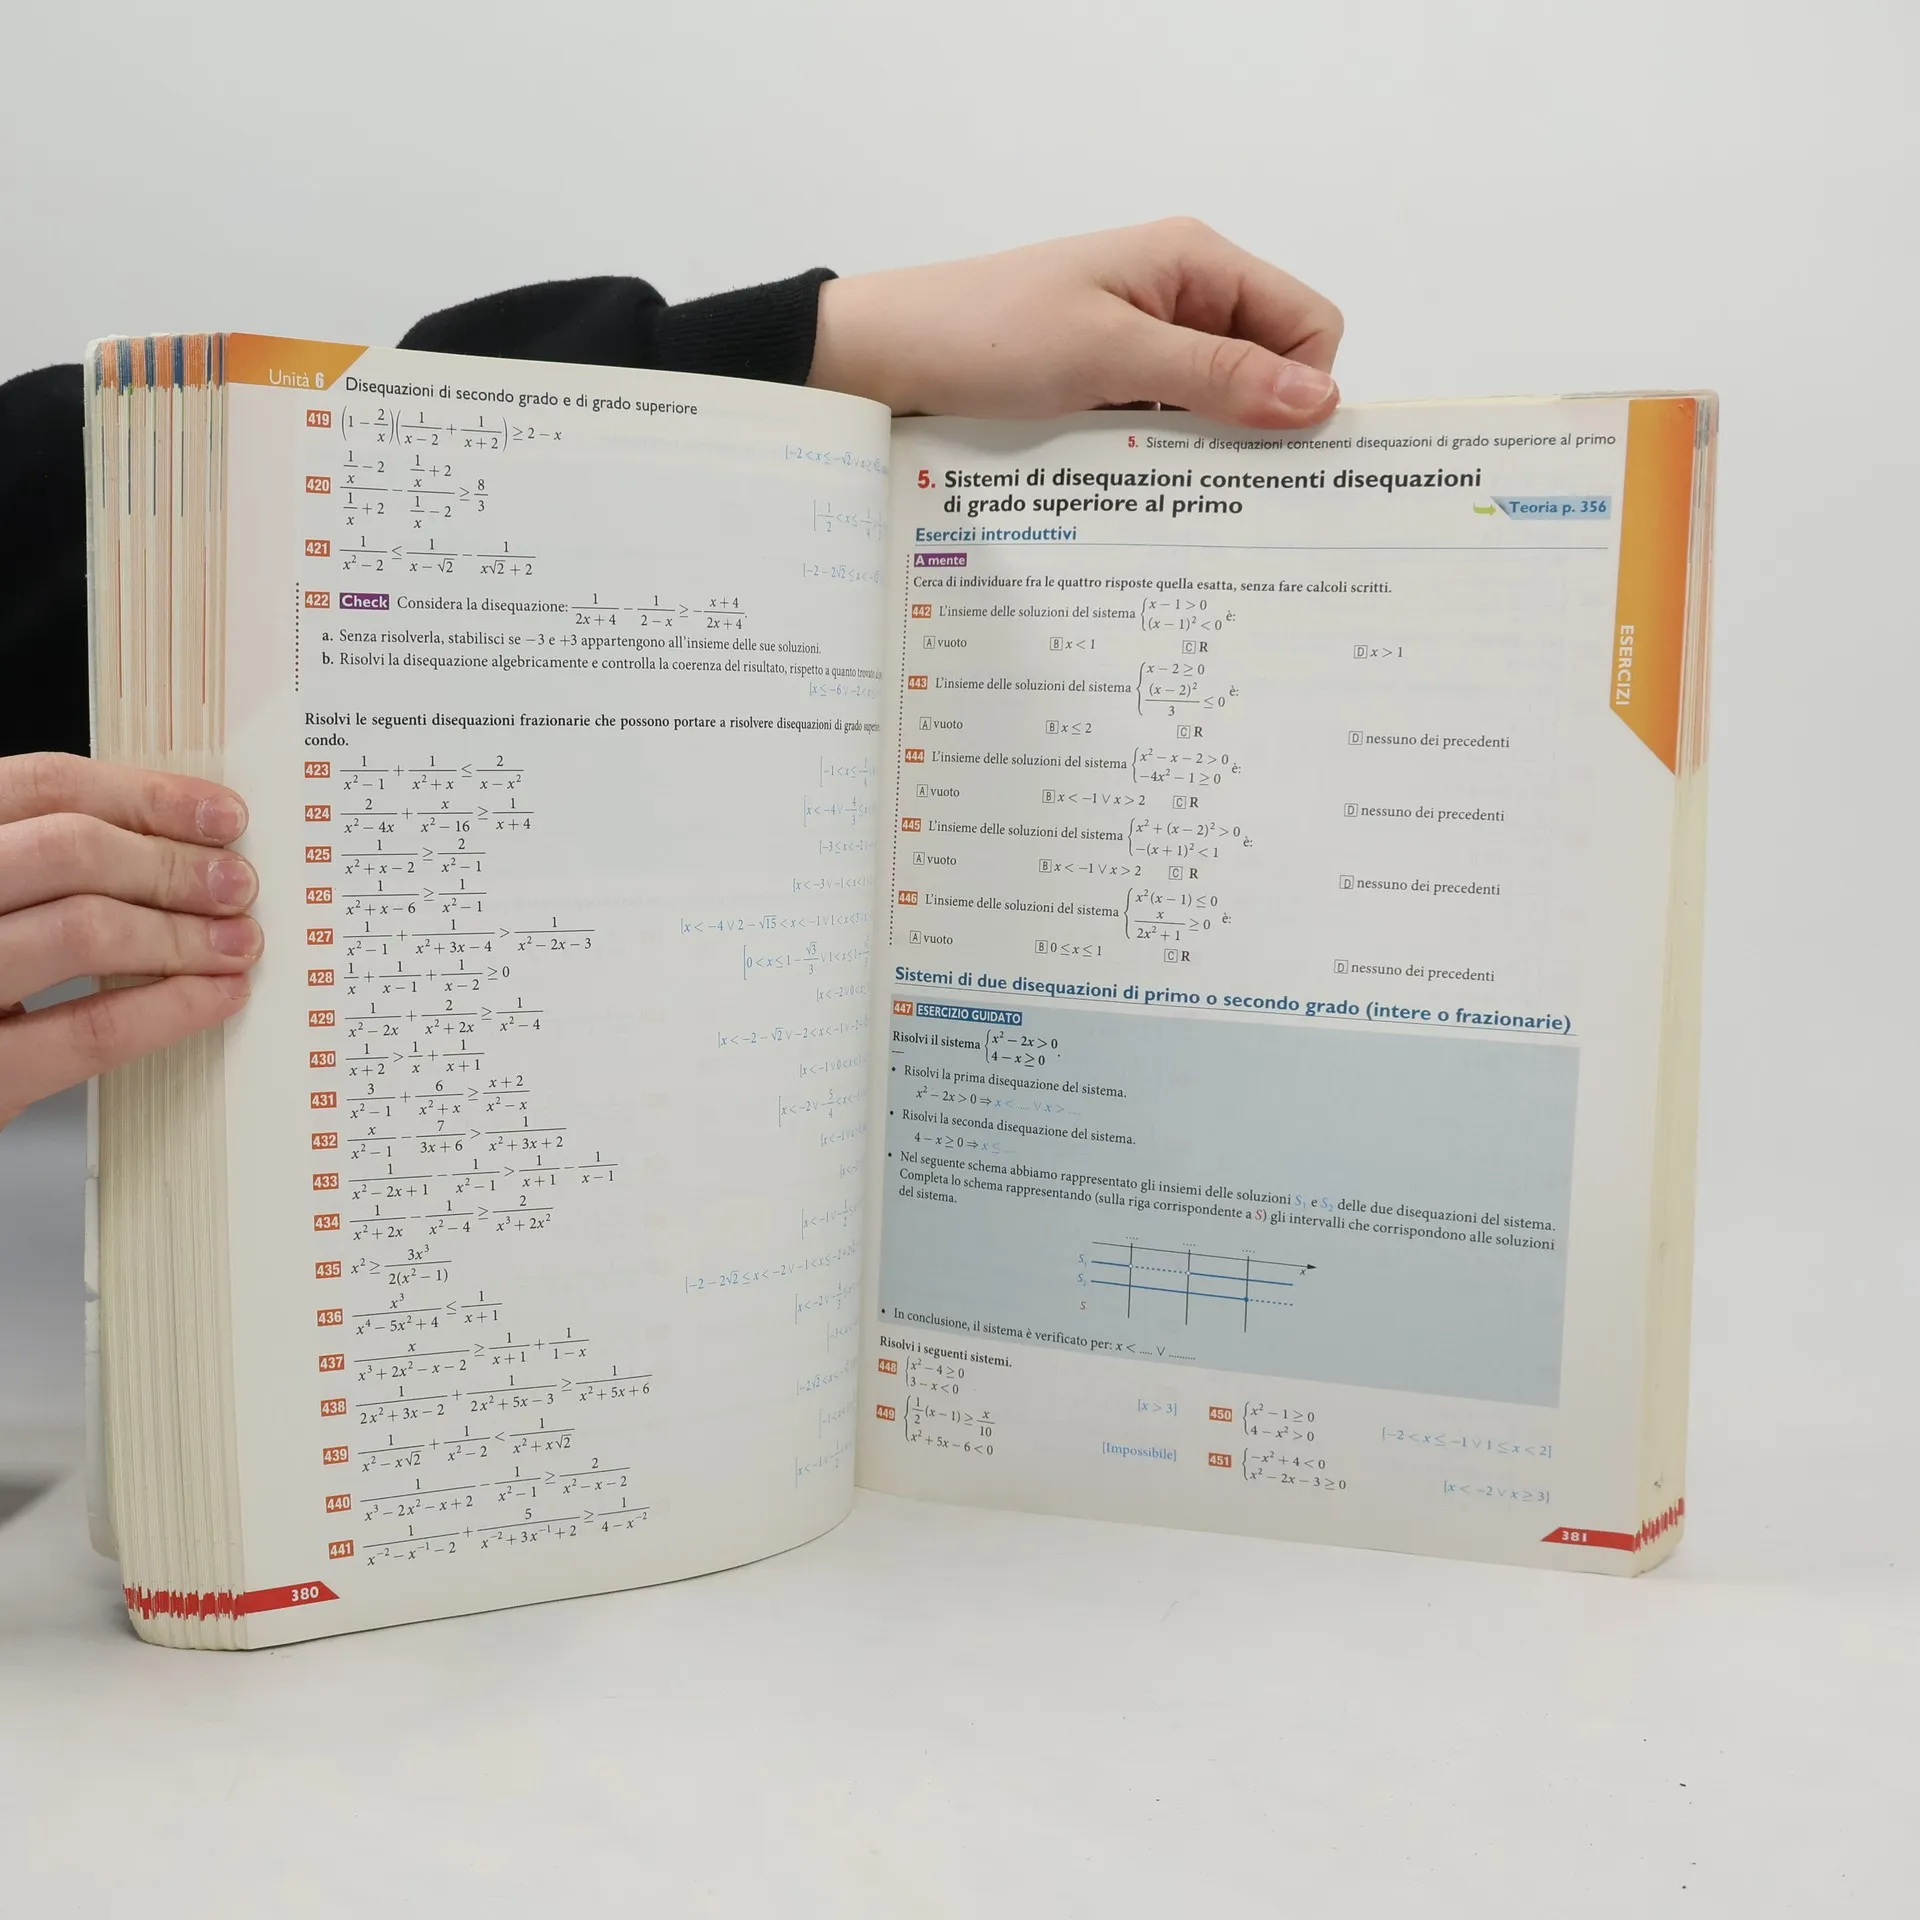 Unità 6 Disequazioni di secondo grado e di grado superiore
419 (1 − 2/x)(1/(x − 2) + 1/(x + 2)) ≥ 2 − x
420 (1/x − 2)/(1/x + 2) − (1/x + 2)/(1/x − 2) ≥ 8/3
421 1/(x² − 2) ≤ 1/(x − √2) − 1/(x√2 + 2)
422 Check Considera la disequazione: 1/(2x + 4) − 1/(2 − x) ≥ −(x + 4)/(2x + 4).
a. Senza risolverla, stabilisci se −3 e +3 appartengono all'insieme delle sue soluzioni.
b. Risolvi la disequazione algebricamente e controlla la coerenza del risultato, rispetto a quanto trovato
Risolvi le seguenti disequazioni frazionarie che possono portare a risolvere disequazioni di grado
condo.
423 1/(x² − 1) + 1/(x² + x) ≤ 2/(x − x²)
424 2/(x² − 4x) + x/(x² − 16) ≥ 1/(x + 4)
425 1/(x² + x − 2) ≥ 2/(x² − 1)
426 1/(x² + x − 6) ≥ 1/(x² − 1)
427 1/(x² − 1) + 1/(x² + 3x − 4) > 1/(x² − 2x − 3)
428 1/x + 1/(x − 1) + 1/(x − 2) ≥ 0
429 1/(x² − 2x) + 2/(x² + 2x) ≥ 1/(x² − 4)
430 1/(x + 2) > 1/x + 1/(x + 1)
431 3/(x² − 1) + 6/(x² + x) ≥ (x + 2)/(x² − x)
432 x/(x² − 1) − 7/(3x + 6) > 1/(x² + 3x + 2)
433 1/(x² − 2x + 1) − 1/(x² − 1) > 1/(x + 1) − 1/(x − 1)
434 1/(x² + 2x) − 1/(x² − 4) ≥ 2/(x³ + 2x²)
435 x² ≥ 3x³/(2(x² − 1))
436 x³/(x⁴ − 5x² + 4) ≤ 1/(x + 1)
437 x/(x³ + 2x² − x − 2) ≥ 1/(x + 1) + 1/(1 − x)
438 1/(2x² + 3x − 2) + 1/(2x² + 5x − 3) ≥ 1/(x² + 5x + 6)
439 1/(x² − x√2) + 1/(x² − 2) < 1/(x² + x√2)
440 1/(x³ − 2x² − x + 2) − 1/(x² − 1) ≥ 2/(x² − x − 2)
441 1/(x⁻² − x⁻¹ − 2) + 5/(x⁻² + 3x⁻¹ + 2) ≥ 1/(4 − x⁻²)
380
5. Sistemi di disequazioni contenenti disequazioni di grado superiore al primo
5. Sistemi di disequazioni contenenti disequazioni
di grado superiore al primo
Teoria p. 356
Esercizi introduttivi
A mente
Cerca di individuare fra le quattro risposte quella esatta, senza fare calcoli scritti.
442 L'insieme delle soluzioni del sistema { x − 1 > 0
(x − 1)² < 0 è:
A vuoto B x < 1 C R D x > 1
443 L'insieme delle soluzioni del sistema { x − 2 ≥ 0
(x − 2)²/3 ≤ 0 è:
A vuoto B x ≤ 2 C R D nessuno dei precedenti
444 L'insieme delle soluzioni del sistema { x² − x − 2 > 0
−4x² − 1 ≥ 0 è:
A vuoto B x < −1 ∨ x > 2 C R D nessuno dei precedenti
445 L'insieme delle soluzioni del sistema { x² + (x − 2)² > 0
−(x + 1)² < 1 è:
A vuoto B x < −1 ∨ x > 2 C R D nessuno dei precedenti
446 L'insieme delle soluzioni del sistema { x²(x − 1) ≤ 0
x/(2x² + 1) ≥ 0 è:
A vuoto B 0 ≤ x ≤ 1 C R D nessuno dei precedenti
Sistemi di due disequazioni di primo o secondo grado (intere o frazionarie)
447 ESERCIZIO GUIDATO
Risolvi il sistema { x² − 2x > 0
4 − x ≥ 0 .
• Risolvi la prima disequazione del sistema.
x² − 2x > 0 ⇒ x < .... ∨ x > ....
• Risolvi la seconda disequazione del sistema.
4 − x ≥ 0 ⇒ x ≤ ....
• Nel seguente schema abbiamo rappresentato gli insiemi delle soluzioni S₁ e S₂ delle due disequazioni del sistema.
Completa lo schema rappresentando (sulla riga corrispondente a S) gli intervalli che corrispondono alle soluzioni
del sistema.
.... .... ....
x
S₁
S₂
S
• In conclusione, il sistema è verificato per: x < ..... ∨ ..........
Risolvi i seguenti sistemi.
448 { x² − 4 ≥ 0
3 − x < 0 [x > 3]
449 { 1/2(x − 1) ≥ x/10
x² + 5x − 6 < 0 [Impossibile]
450 { x² − 1 ≥ 0
4 − x² > 0 [−2 < x ≤ −1 ∨ 1 ≤ x < 2]
451 { −x² + 4 < 0
x² − 2x − 3 ≥ 0 [x < −2 ∨ x ≥ 3]
ESERCIZI
381